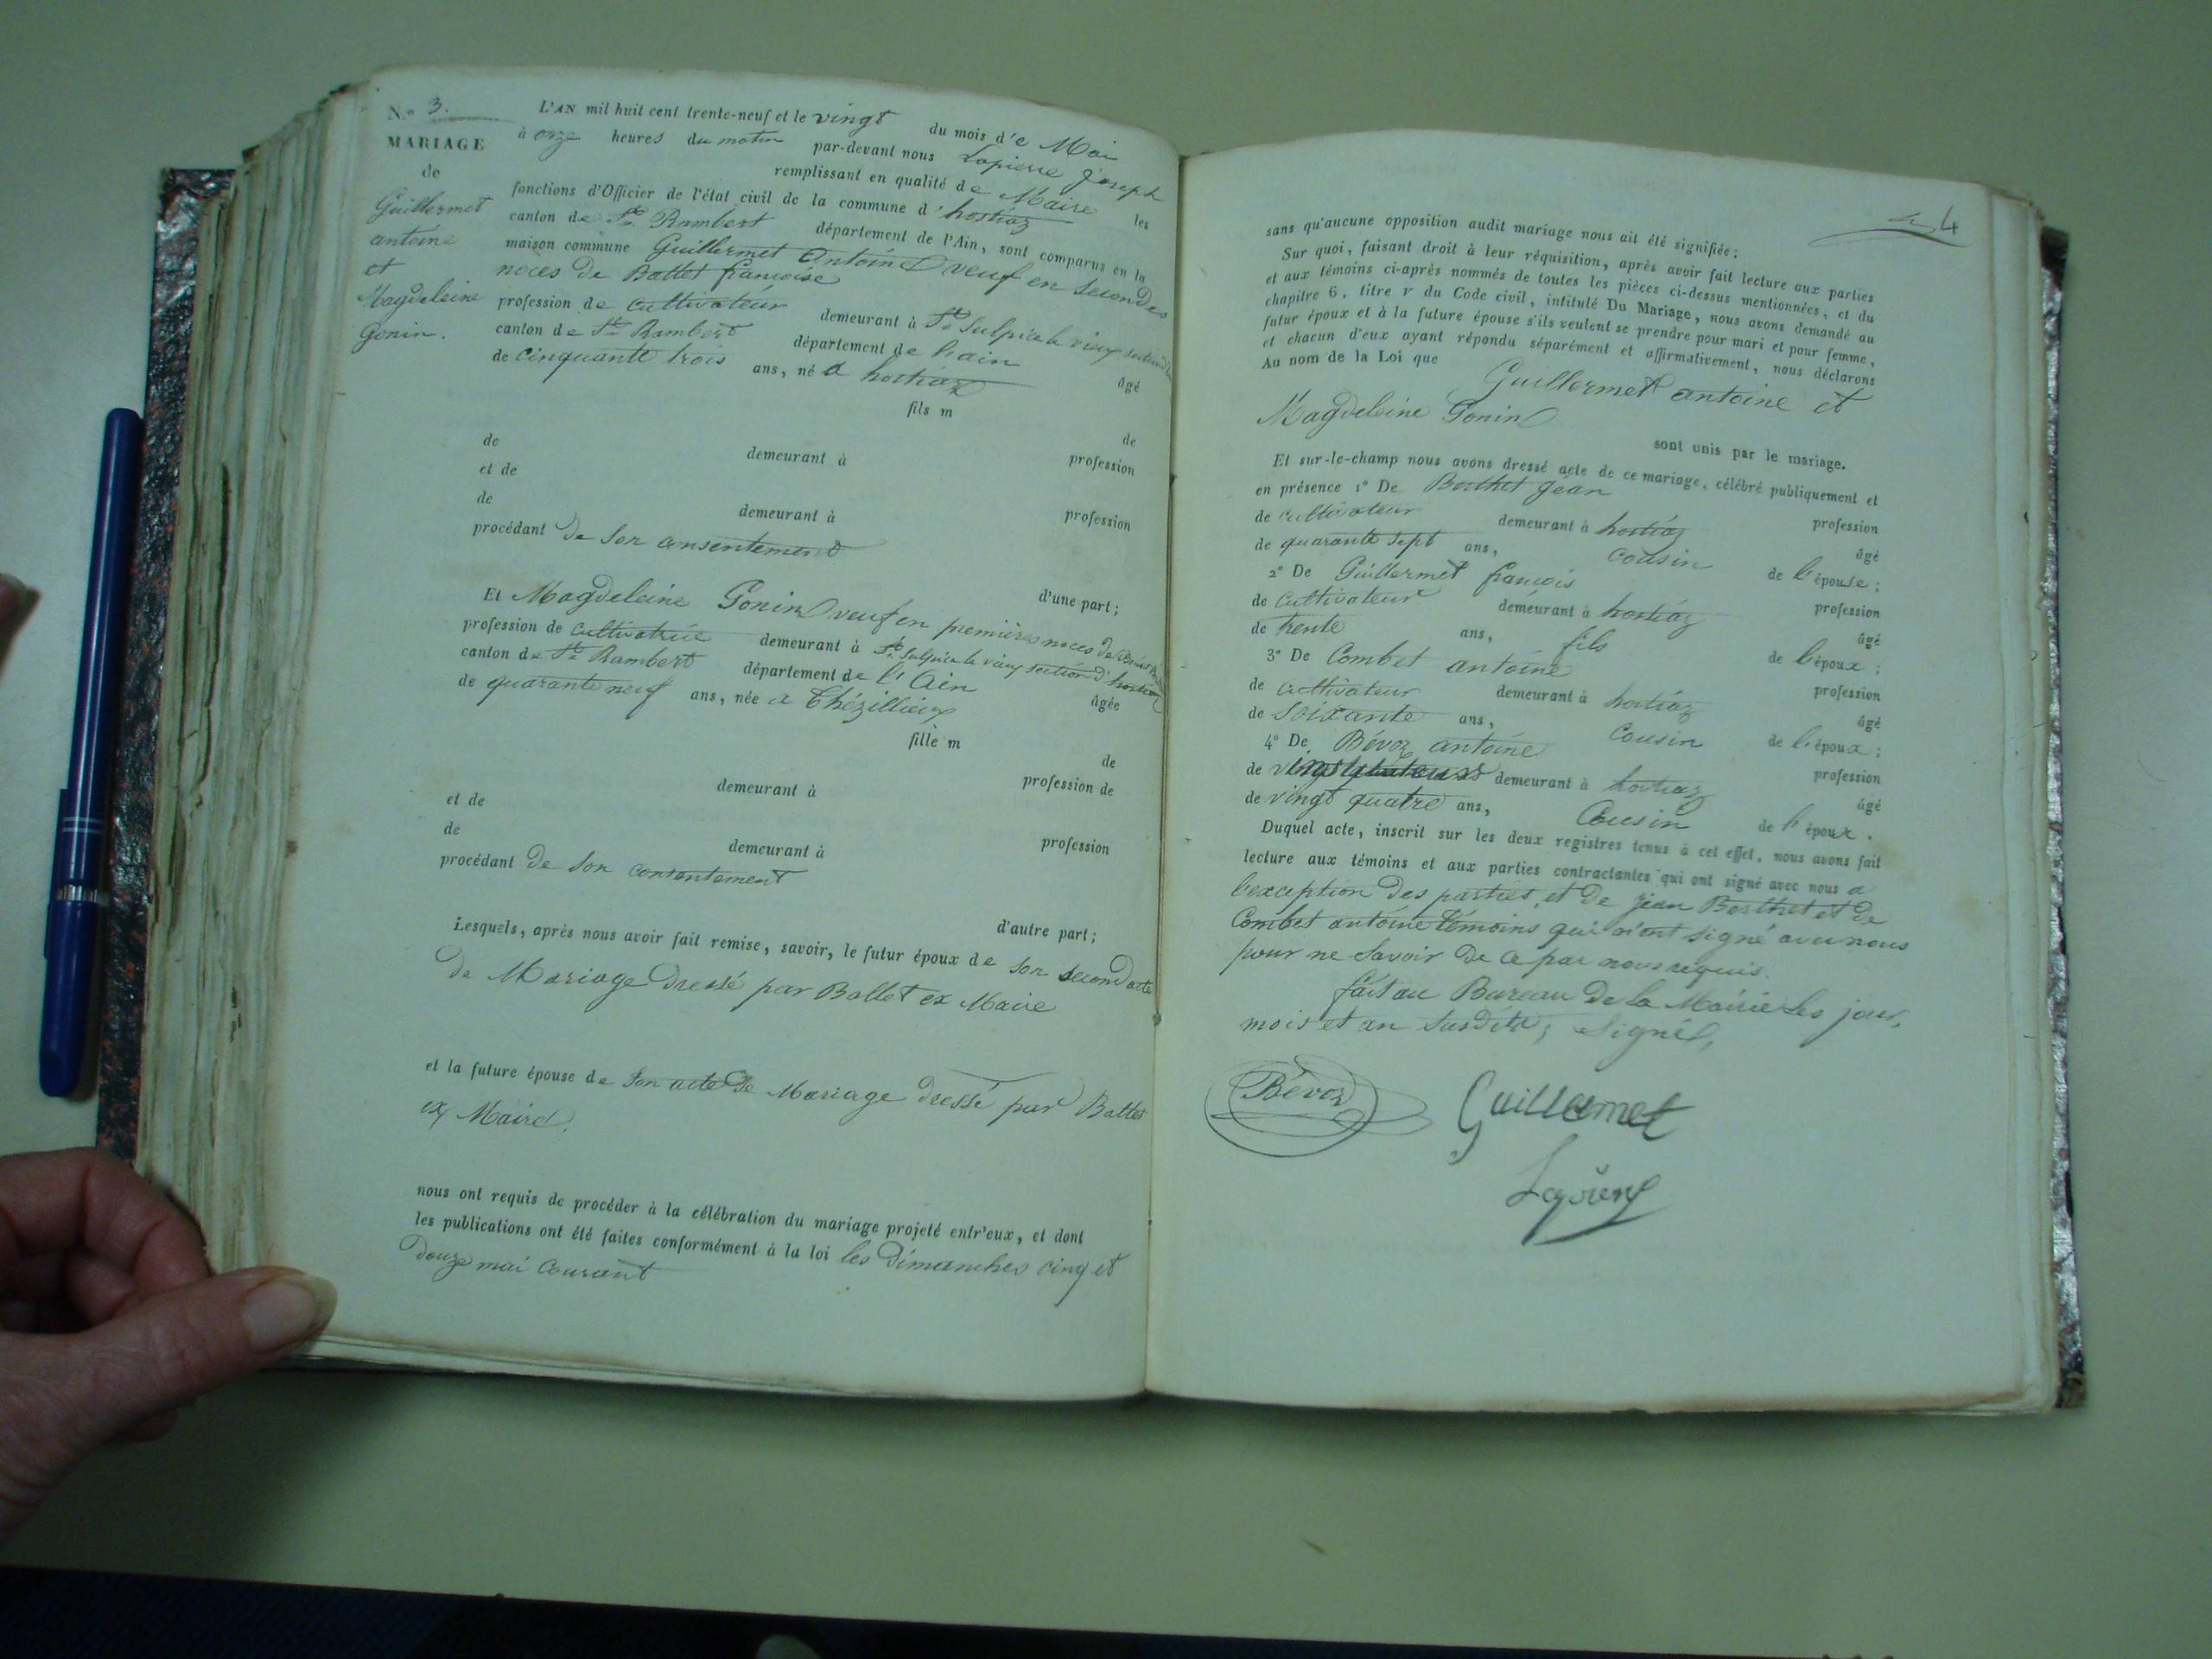 N.º 3.
MARIAGE
de
Guillermet
antoine
et
Magdeleine
Gonin.
L'AN mil huit cent trente-neuf et le vingt du mois d'e Mai
à onze heures du matin par-devant nous Lapierre Joseph
remplissant en qualité de Maire les
fonctions d'Officier de l'état civil de la commune d'hostiaz
canton de St. Rambert département de l'Ain, sont comparus en la
maison commune Guillermet Antoine veuf en secondes
noces de Ballet françoise
profession de cultivateur demeurant à St Sulpice le vieux section
canton de St. Rambert département de l'ain âgé
de cinquante trois ans, né a hostiaz
fils m
de
de demeurant à profession
et de
de demeurant à profession
procédant de son consentement
d'une part;
Et Magdeleine Gonin veuf en premières noces de
profession de cultivatrice demeurant à St. Sulpice le vieux section d'hostiaz
canton de St. Rambert département de l'Ain âgée
de quarante neuf ans, née a Thézillieux
fille m
de
demeurant à profession de
et de
de demeurant à profession
procédant de son consentement
d'autre part;
Lesquels, après nous avoir fait remise, savoir, le futur époux de son second acte
de Mariage dressé par Ballet ex Maire
et la future épouse de son acte de Mariage dressé par Ballet
ex Maire.
nous ont requis de procéder à la célébration du mariage projeté entr'eux, et dont
les publications ont été faites conformément à la loi les dimanches cinq et
douze mai courant
4
sans qu'aucune opposition audit mariage nous ait été signifiée:
Sur quoi, faisant droit à leur réquisition, après avoir fait lecture aux parties
et aux témoins ci-après nommés de toutes les pièces ci-dessus mentionnées, et du
chapitre 6, titre v du Code civil, intitulé Du Mariage, nous avons demandé au
futur époux et à la future épouse s'ils veulent se prendre pour mari et pour femme,
et chacun d'eux ayant répondu séparément et affirmativement, nous déclarons
Au nom de la Loi que Guillermet antoine et
Magdeleine Gonin
sont unis par le mariage.
Et sur-le-champ nous avons dressé acte de ce mariage, célébré publiquement et
en présence 1º De Berthet Jean profession
de cultivateur demeurant à hostiaz âgé
de quarante sept ans, cousin de l'épouse;
2º De Guillermet françois profession
de cultivateur demeurant à hostiaz âgé
de trente ans, fils de l'époux;
3º De Combet antoine profession
de cultivateur demeurant à hostiaz âgé
de soixante ans, Cousin de l'époux;
4º De Bévoz antoine profession
de demeurant à hostiaz âgé
de vingt quatre ans, Cousin de l'époux.
Duquel acte, inscrit sur les deux registres tenus à cet effet, nous avons fait
lecture aux témoins et aux parties contractantes qui ont signé avec nous a
l'exception des parties, et de jean Berthet et de
Combet antoine témoins qui n'ont signé avec nous
pour ne savoir de ce par nous requis.
fait au Bureau de la Mairie les jour,
mois et an susdits; Signé,
Bévoz
Guillermet
Lapierre